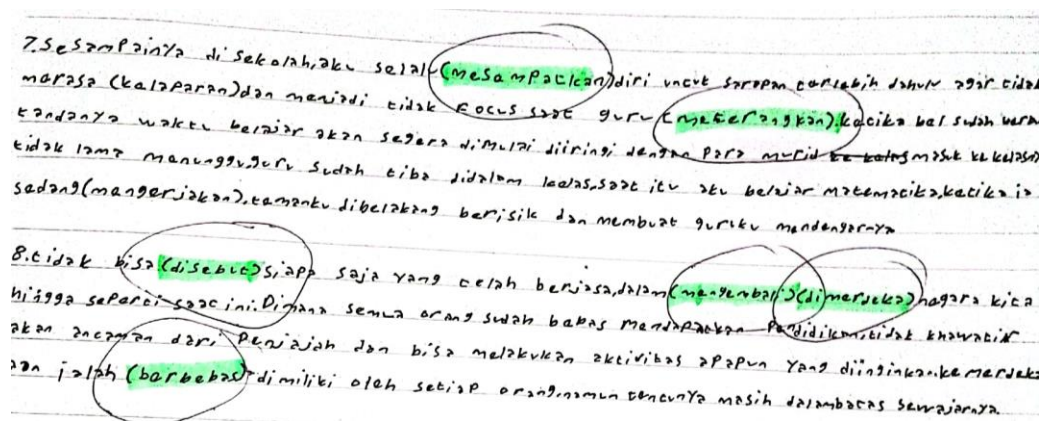 7.Sesampainya di sekolah,aku selalu (mesampatkan)diri untuk sarapan terlebih dahulu agar tidak
merasa (kelaparan)dan menjadi tidak focus saat guru (meterangkan).ketika bel sudah
tandanya waktu belajar akan segera dimulai diiringi dengan para murid masuk ke kelasnya
tidak lama menunggu,guru sudah tiba didalam kelas,saat itu aku belajar matematika,ketika ia
sedang(mengerjakan),temanku dibelakang berisik dan membuat guruku mendengarnya
8.tidak bisa (disebut)siapa saja yang telah berjasa,dalam(mengembali)(dimerdeka)negara kita
hingga seperti saat ini.Dimana semua orang sudah bebas mendapatkan Pendidikan,tidak khawatir
akan ancaman dari Penjajah dan bisa melakukan aktivitas apapun yang diinginkan.kemerdeka
aan ialah (berbebas) dimiliki oleh setiap orang,namun tentunya masih dalam batas sewajarnya.